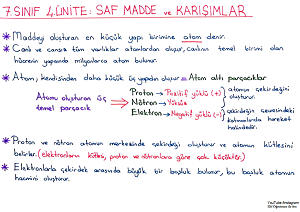 7.SINIF 4.ÜNİTE: SAF MADDE ve KARIŞIMLAR
* Maddeyi oluşturan en küçük yapı birimine atom denir.
* Canlı ve cansız tüm varlıklar atomlardan oluşur, canlının temel birimi olan
hücrenin yapısında milyonlarca atom bulunur.
* Atom, kendisinden daha küçük üç yapıdan oluşur = Atom altı parçacıklar
Atomu oluşturan üç
temel parçacık
Proton → Pozitif yüklü (+)
Nötron → Yüksüz
Elektron → Negatif yüklü (-)
atomun çekirdeğini
oluşturur.
çekirdeğin çevresindeki
katmanlarda hareket
halindedir.
* Proton ve nötron atomun merkezinde çekirdeği oluşturur ve atomun kütlesini
belirler. (elektronların kütlesi, proton ve nötronlara göre çok küçüktür.)
* Elektronlarla çekirdek arasında büyük bir boşluk bulunur, bu boşluk atomun
hacmini oluşturur.